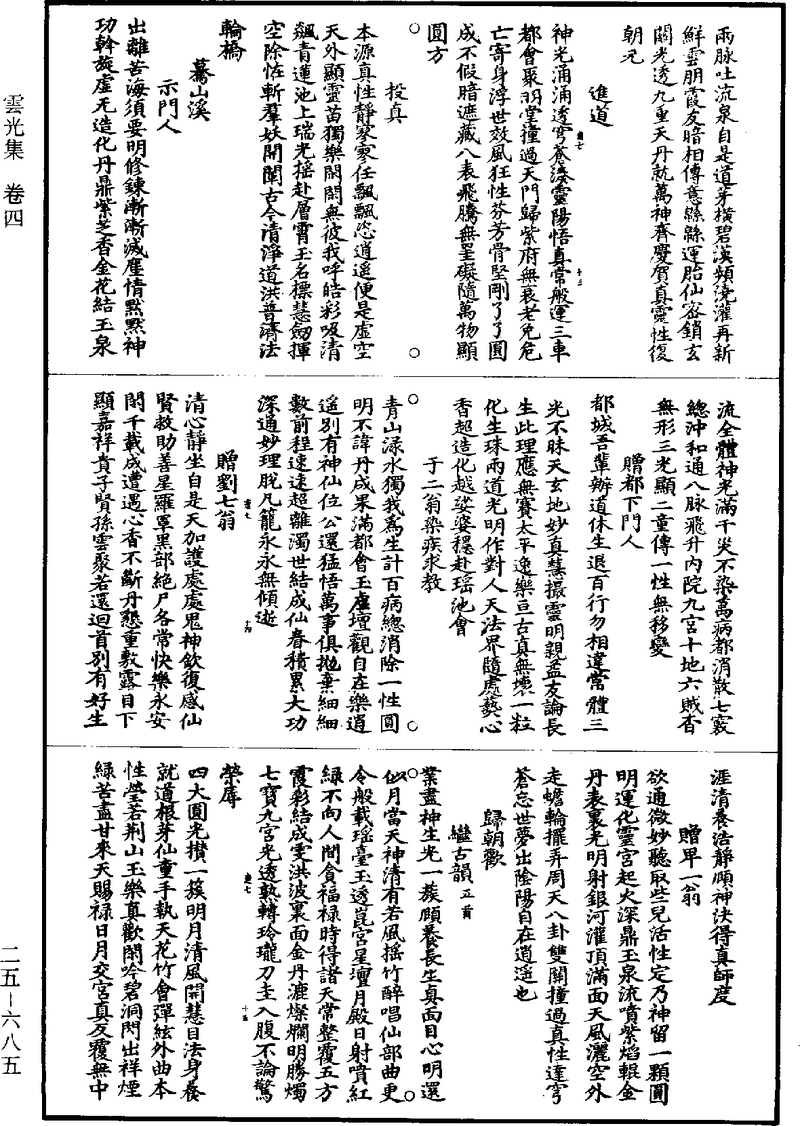 雲光集　卷四
兩脉吐流泉自是道芽橫碧漢頻澆灌再新
鮮雲朋霞友暗相傳意緜緜運胎仙密鎖玄
關光透九重天丹就萬神齊慶賀真靈性復
朝元
進道
神光涌涌透穹蒼湊靈陽悟真常般運三車
都會聚明堂撞過天門歸紫府無衰老免危
亡寄身浮世效風狂性芬芳骨堅剛了了圓
成不假暗遮藏八表飛騰無罣礙隨萬物顯
圓方
投真
本源真性靜寥寥任飄飄恣逍遥便是虛空
天外顯靈苗獨樂閑閑無彼我呼皓彩吸清
飆青蓮池上瑞光摇赴層霄玉名標慧劒揮
空除恠斬羣妖開闡古今清淨道洪普濟法
輪橋
驀山溪
示門人
出離苦海須要明修鍊漸漸滅塵情默默神
功斡旋虛无造化丹鼎紫芝香金花結玉泉
流全體神光滿千災不染萬病都消散七竅
總沖和通八脉飛升内院九宮十地六賊杳
無形三光顯二童傳一性無移變
贈都下門人
都城吾輩辦道休生退百行勿相違常體三
光不昧天玄地妙真慧撮靈明親孟友論長
生此理應無賽太平逸樂亘古真無壞一粒
化生珠兩道光明作對人天法界隨處藝心
香超造化越娑婆穩赴瑶池會
于二翁染疾求教
青山渌水獨我爲生計百病總消除一性圓
明不諱丹成果滿都會玉虛壇觀自在樂逍
遥別有神仙位公還猛悟萬事俱拋棄細細
數前程速速超離濁世結成仙眷積累大功
深通妙理脫凡籠永永無傾逝
贈劉七翁
清心靜坐自是天加護處處鬼神欽復感仙
賢救助善星羅罩黑部絶尸各常快樂永安
閑千載成遭遇心香不斷丹懇重敷露目下
顯嘉祥貴子賢孫雲聚若還迴首別有好生
涯清養浩靜頤神決得真師度
贈畢一翁
欲通微妙聽取些兒活性定乃神留一顆圓
明運化靈宮起火深鼎玉泉流噴紫焰輥金
丹表裏光明射銀河灌頂滿面天風灑空外
走蟾輪擺弄周天八卦雙關撞過真性達穹
蒼忘世夢出陰陽自在逍遥也
歸朝歡
繼古韻　五首
業盡神生光一簇頤養長生真面目心明還
似月當天神清有若風摇竹醉唱仙部曲更
令般載瑶臺玉透崑宮星壇月殿日射噴紅
緑不向人間貪福禄時得諸天常整覆五方
霞彩結成雯洪波裏面金丹漉燦爛明勝燭
七寶九宮光透熟轉玲瓏刀圭入腹不論驚
榮辱
四大圓光攅一簇明月清風開慧目法身養
就道根芽仙童手執天花竹會彈絃外曲本
性瑩若荆山玉樂真歡閑吟碧洞閃出祥煙
緑苦盡甘來天賜禄日月交宮真反覆無中
二五－六八五